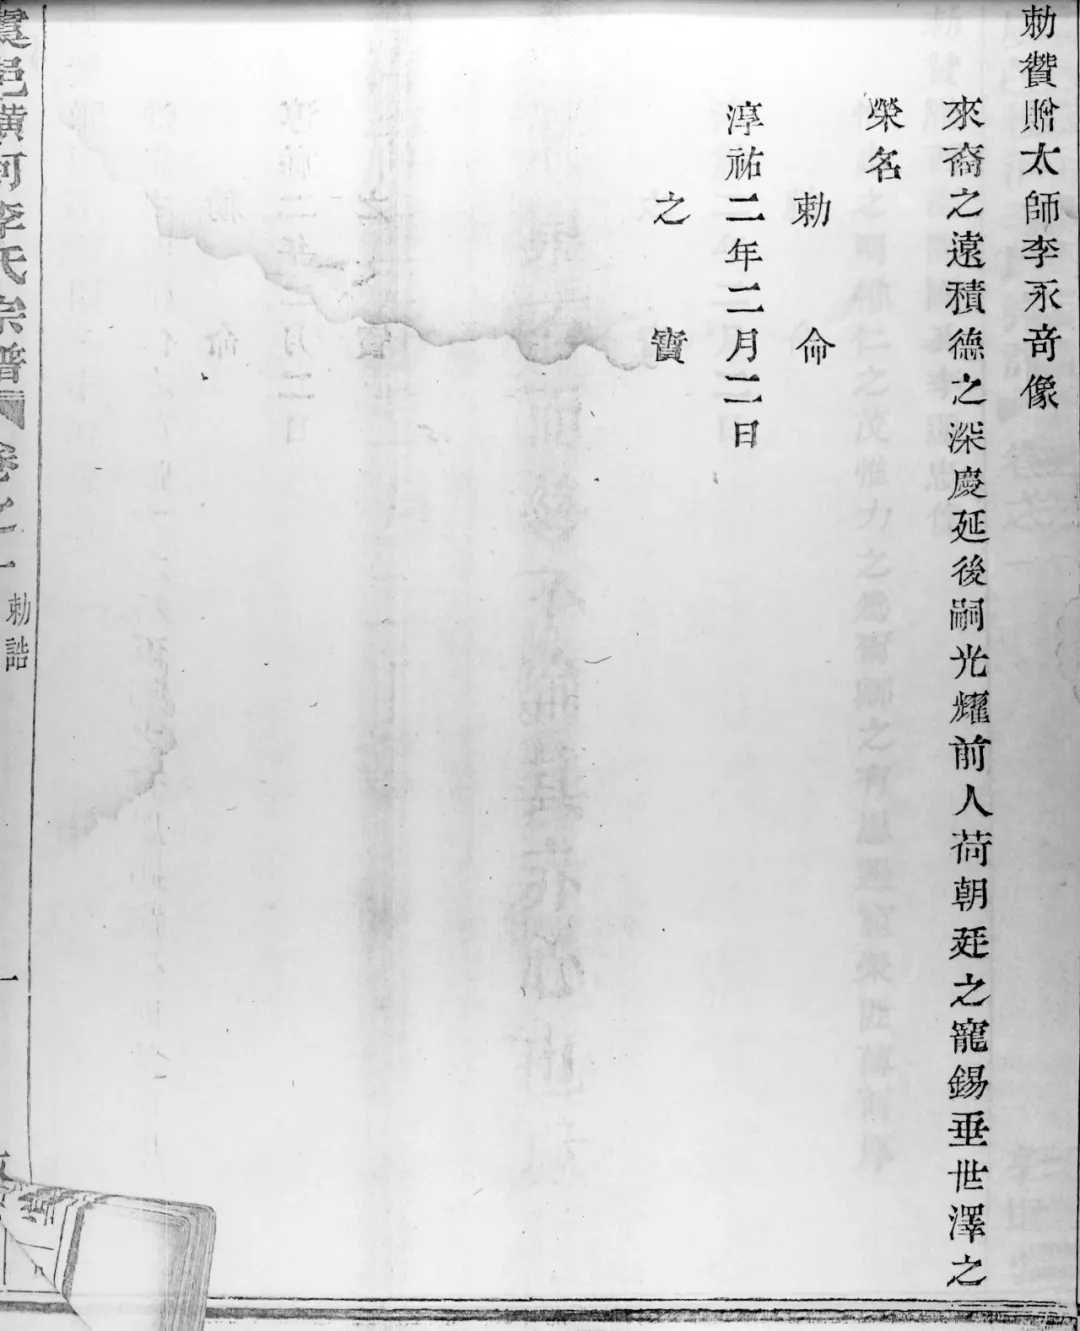 勅贊贈太師李永奇像
來裔之遠積德之深慶延後嗣光耀前人荷朝廷之寵錫垂世澤之
榮名
勅命
淳祐二年二月二日
之寶
虞邑橫河李氏宗譜 卷之一 勅誥 一